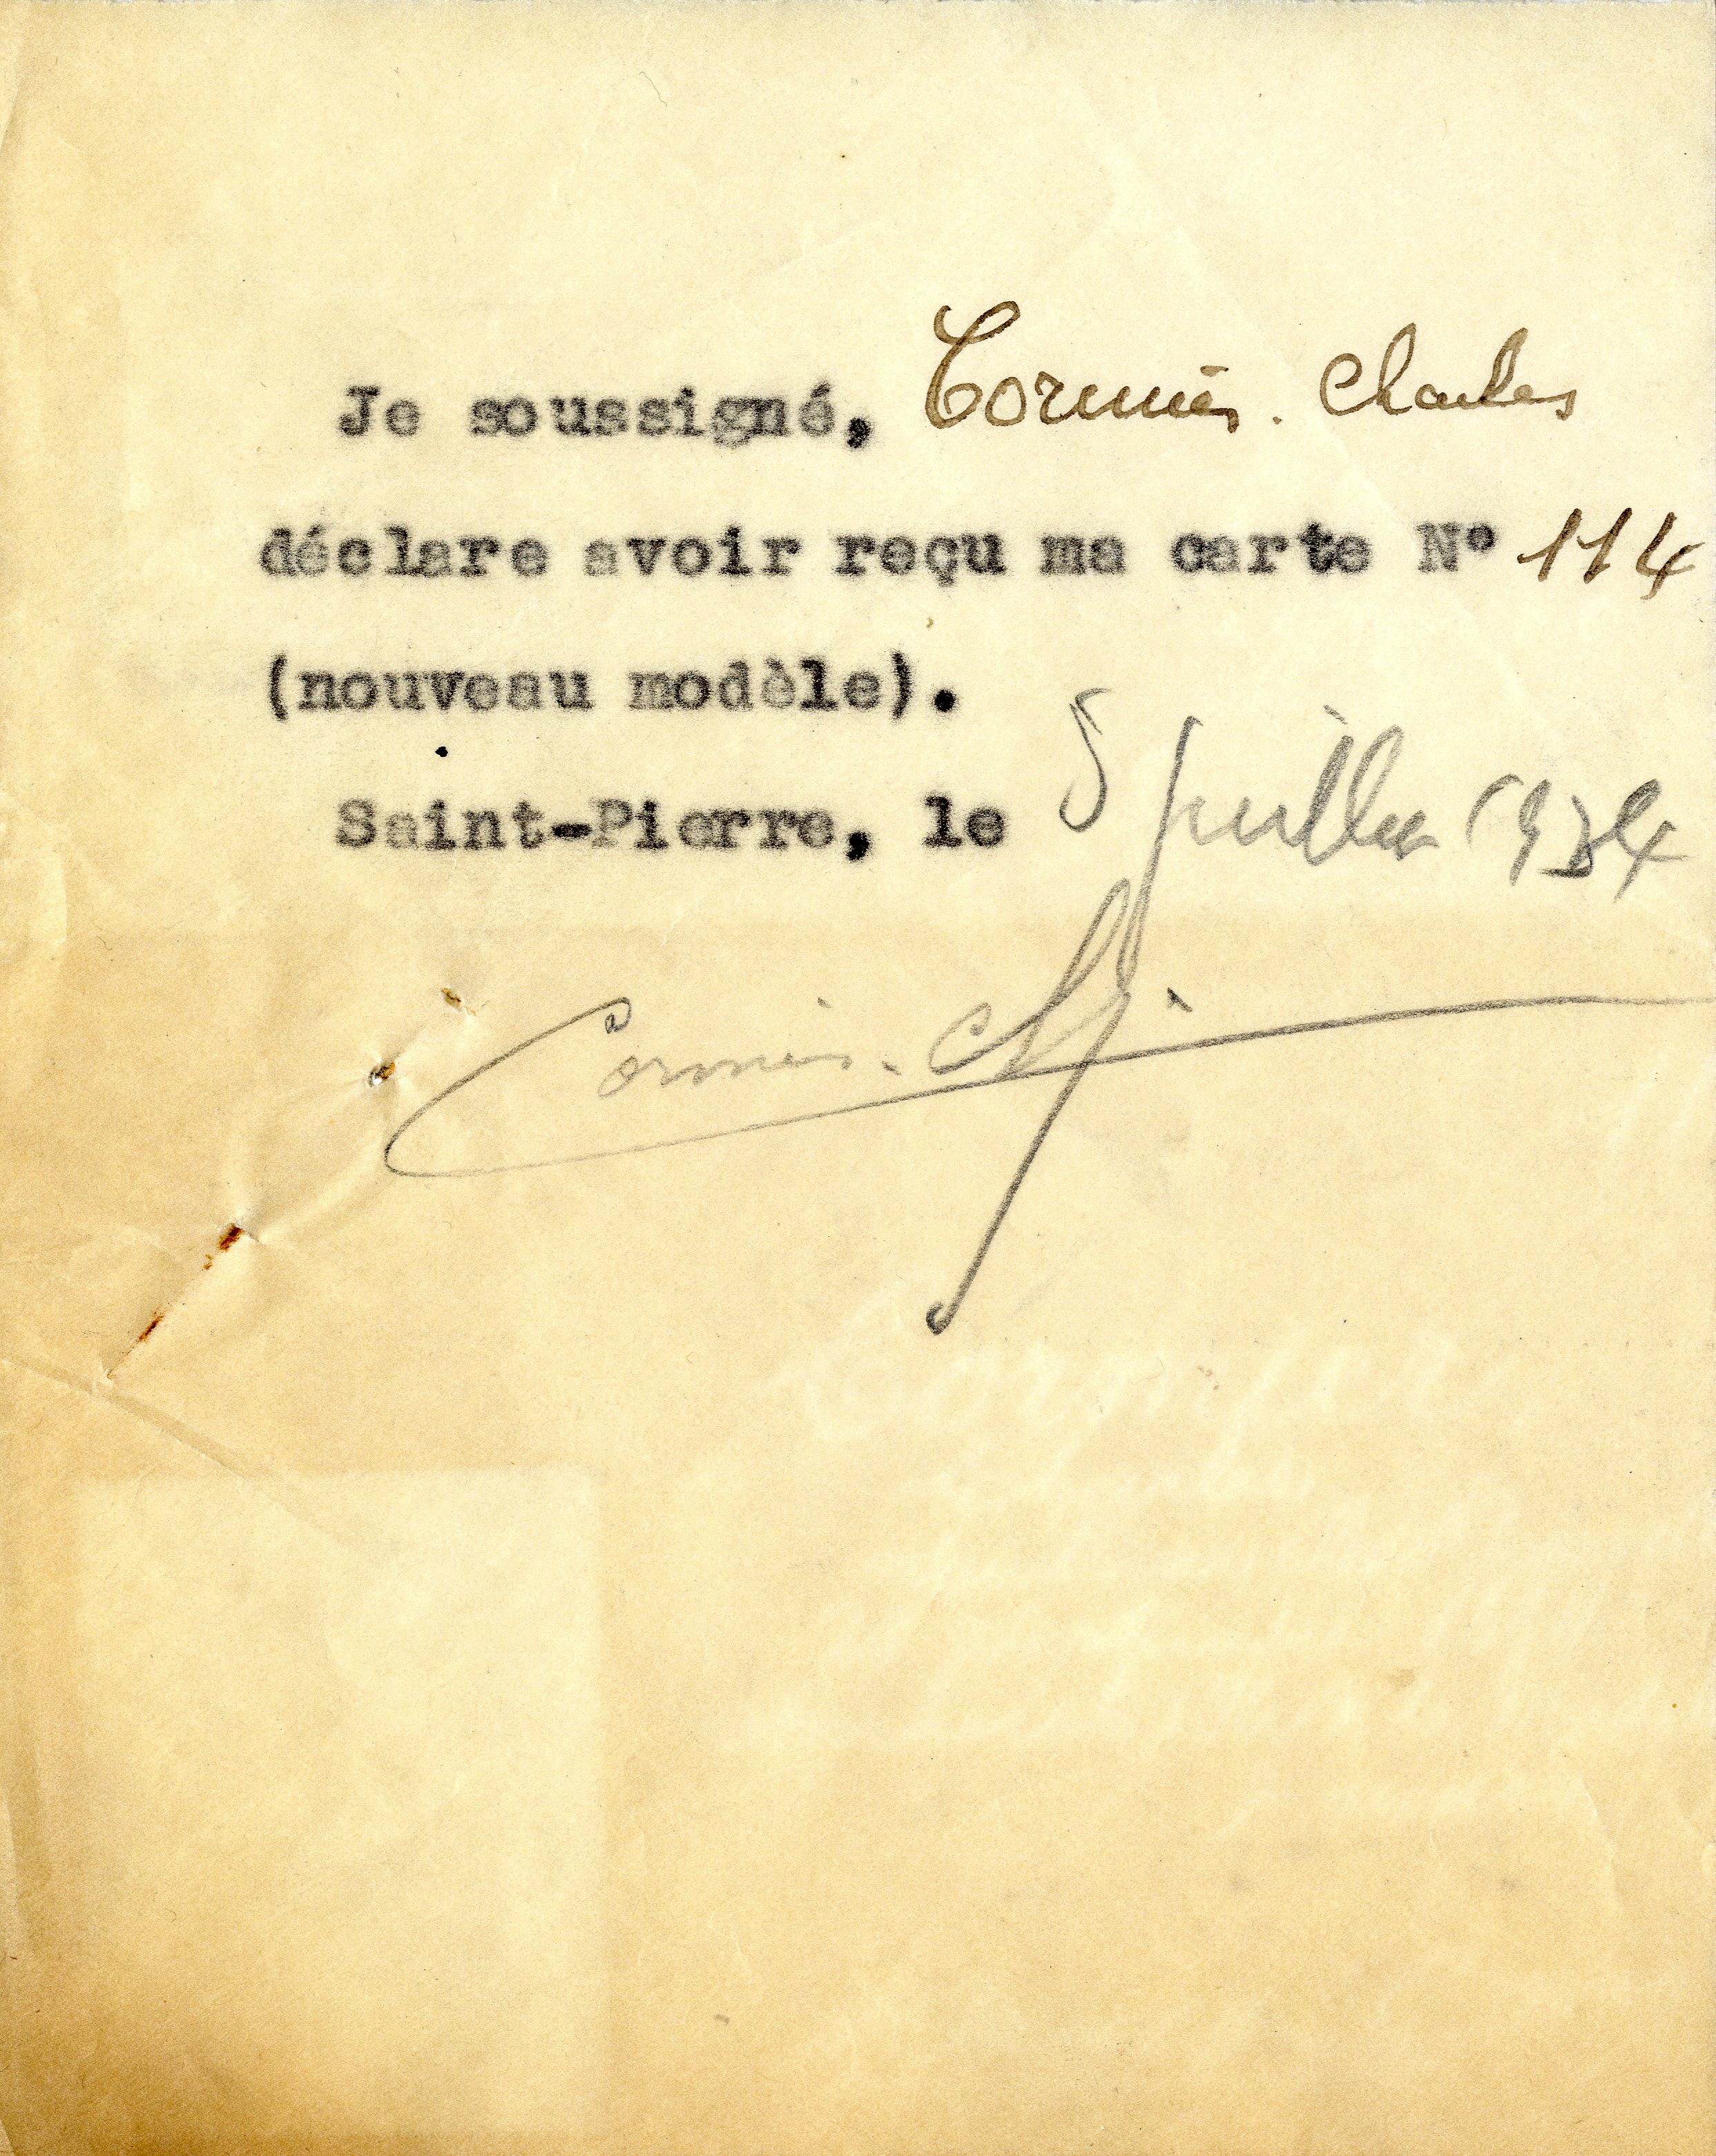 Je soussigné, Cormier. Charles
déclare avoir reçu ma carte Nº 114
(nouveau modèle).
Saint-Pierre, le 5 juillet 1934
Cormier. Ch